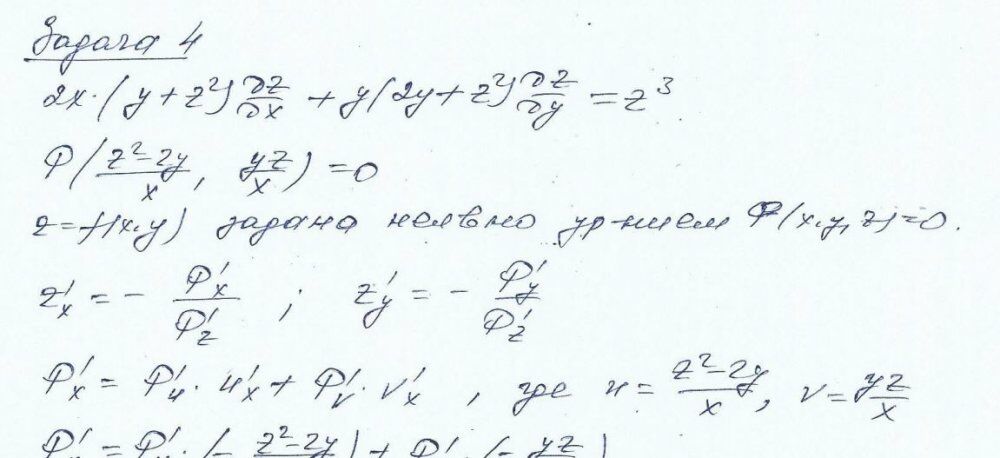 Задача 4
2x·(y+z²)∂z/∂x + y(2y+z²)∂z/∂y = z³
Φ((z²-2y)/x, yz/x) = 0
z=f(x,y) задана неявно ур-нием Φ(x,y,z)=0.
z'x = - Φ'x/Φ'z ; z'y = - Φ'y/Φ'z
Φ'x = Φ'u · u'x + Φ'v · v'x , где u = (z²-2y)/x, v = yz/x